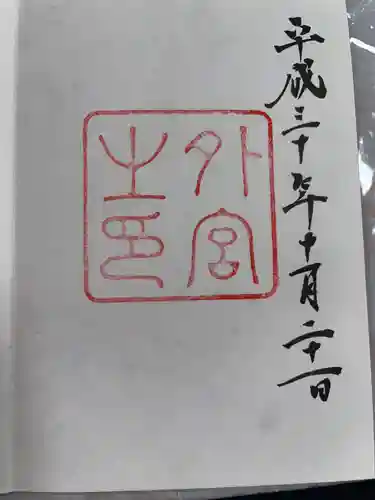 平成三十年十月二十一日
外宮
之印